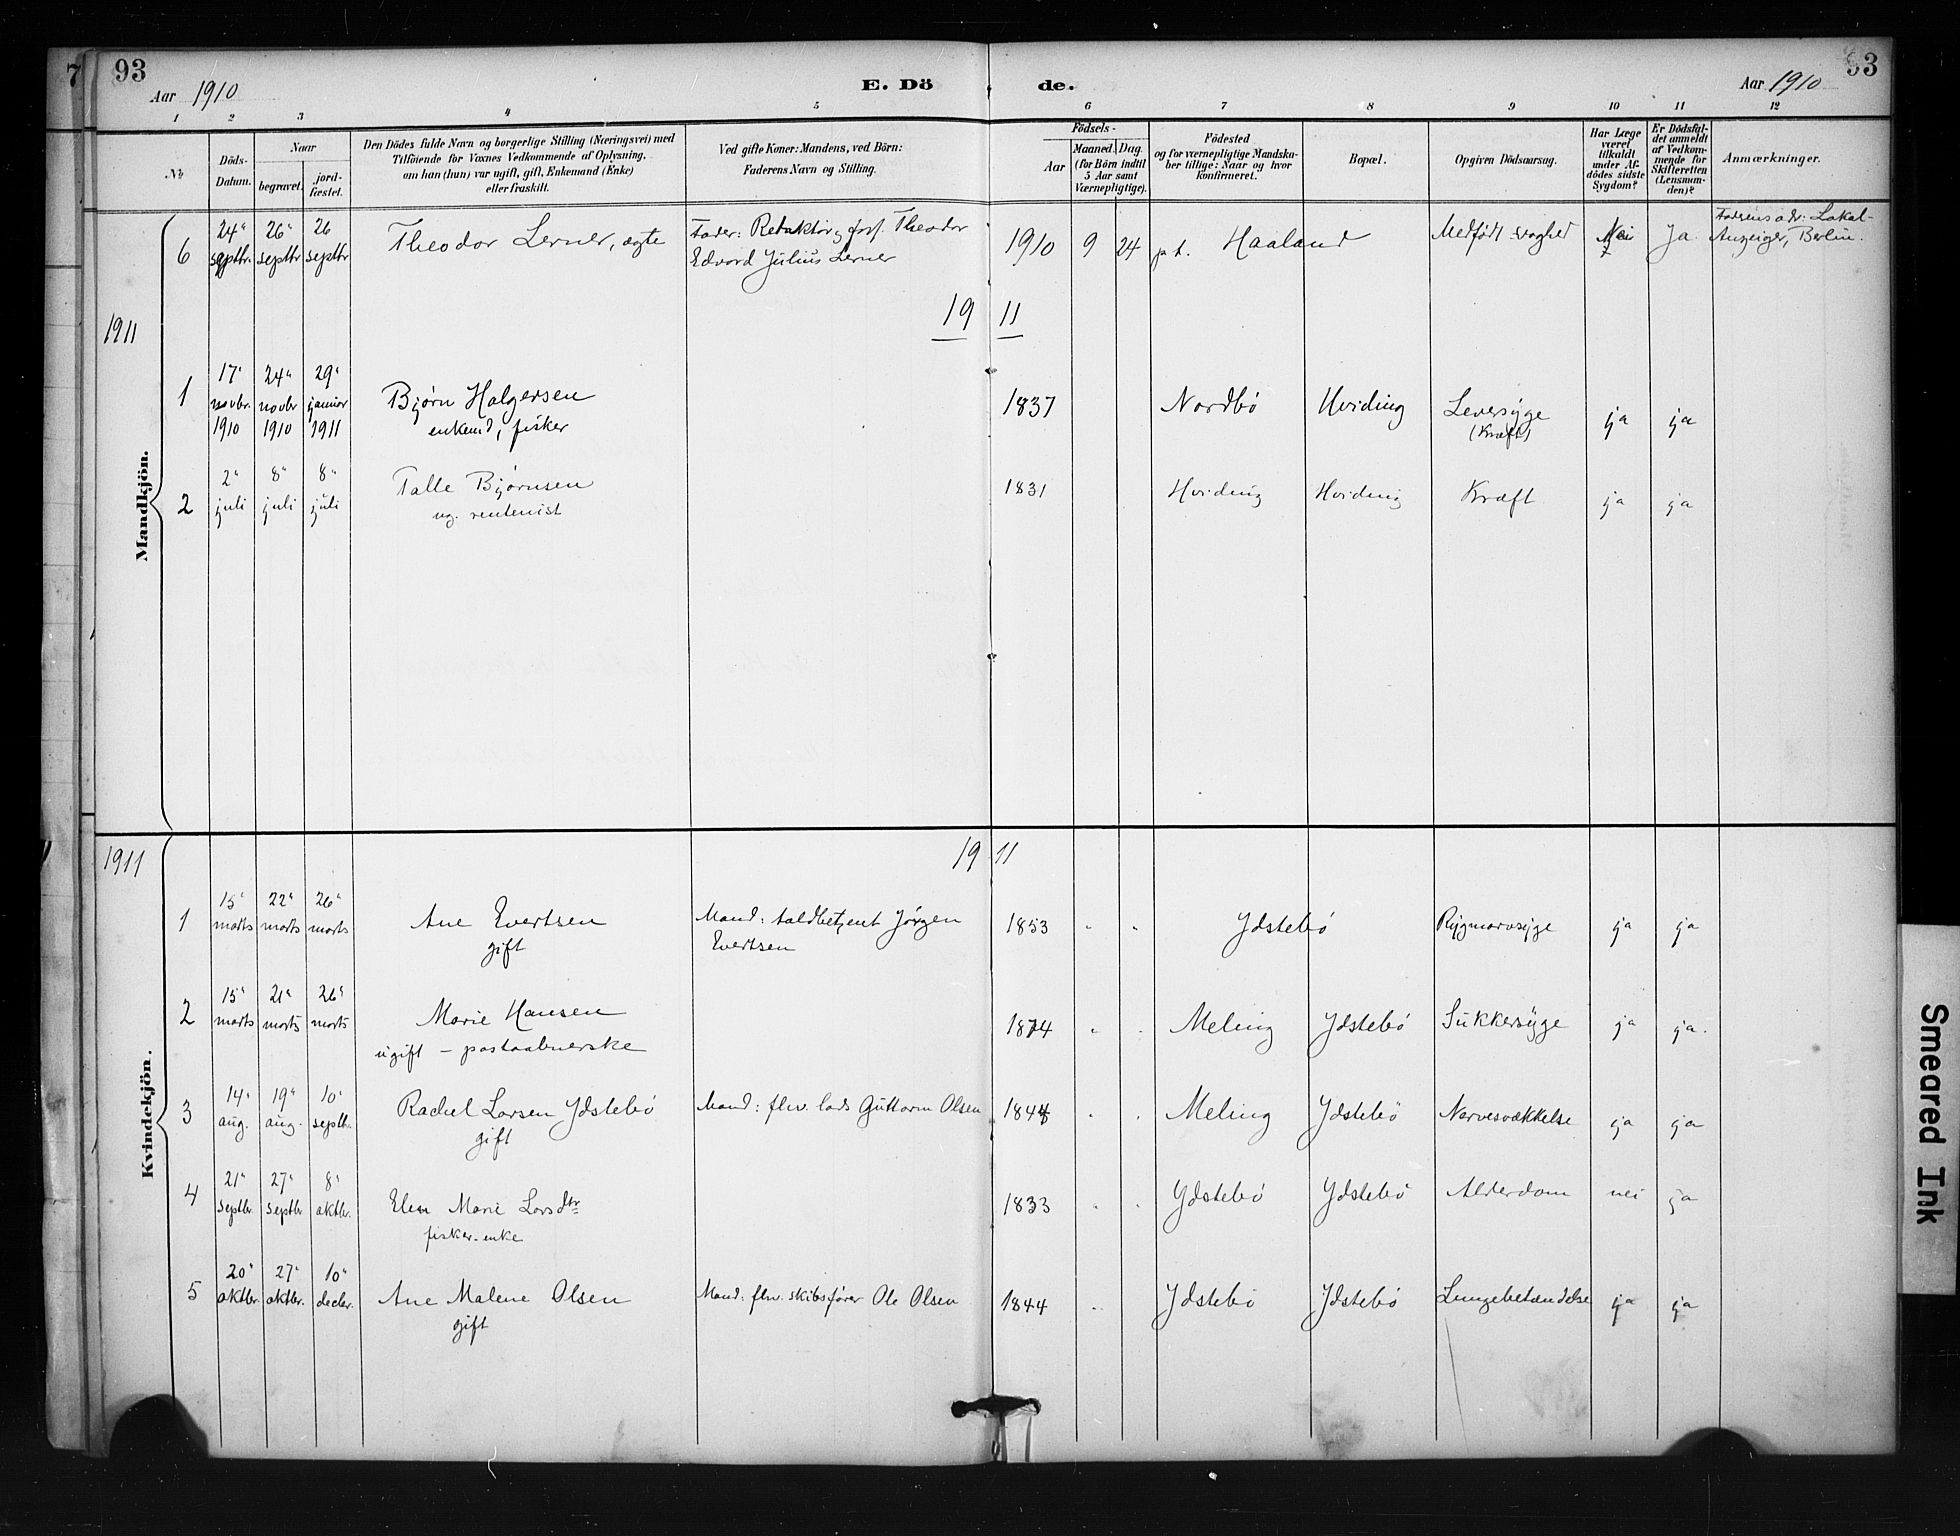 93
Aar 1910
E. Dö de.
Aar 1910
93
1 2 3 4 5 6 7 8 9 10 11 12
No
Döds-
Datum.
Naar
begravet.
jord-
fæstet.
Den Dödes fulde Navn og borgerlige Stilling (Næringsvei) med
Tilföiende for Voxnes Vedkommende af Oplysning,
om han (hun) var ugift, gift, Enkemand (Enke)
eller fraskilt.
Ved gifte Koner: Mandens, ved Börn:
Faderens Navn og Stilling.
Födsels-
Aar
Maaned. Dag.
(for Börn indtil
5 Aar samt
Værnepligtige).
Födested
og for værnepligtige Mandska-
ber tillige: Naar og hvor
konfirmeret.
Bopæl.
Opgiven Dödsaarsag.
Har Læge
været
tilkaldt
under Af-
dödes sidste
Sygdom?
Er Dödsfal-
det anmeldt
af Vedkom-
mende for
Skifteretten
(Lensman-
den)?
Anmærkninger.
Mandkjön.
6
24" septbr.
26" septbr
26 septbr
Theodor Lerner, ægte
Fader: Redaktör, forf. Theodor
Edvard Julius Lerner
1910 9 24 p.t. Haaland
Medfödt svaghed
Nei
Ja
Faderens adr: Lokal-
Anzeiger, Berlin.
1911
19 11
1
17" novbr. 1910
24" novbr 1910
29" januar 1911
Bjørn Holgersen
enkemd, fisker
1837
Nordbö
Hviding
Leversyge
(Kræft)
ja
ja
2
2" juli
8" juli
8" juli
Talle Bjørnsen
ug. rentenist
1831
Hviding
Hviding
Kræft
ja
ja
Kvindekjön.
1911
19 11
1
15" marts
22" marts
26" marts
Ane Evertsen
gift
Mand: toldbetjent Jörgen
Evertsen
1853 " "
Ydstebö
Rygmarvsyge
ja
ja
2
15" marts
21" marts
26" marts
Marie Hansen
ugift – postaabnerske
1874 " "
Meling
Ydstebö
Sukkersyge
ja
ja.
3
14" aug.
19" aug.
10" septbr.
Rachel Larsen Ydstebö
gift
Mand: fhv. lods Guttorm Olsen
" "
Meling
Ydstebö
Nervesvækkelse
ja
ja
4
21" septbr.
27" septbr
8" oktbr.
Elen Marie Larsdtr
fisker-enke
1833 " "
Ydstebö
Ydstebö
Alderdom
nei
ja
5
20" oktbr.
27" oktbr.
10" decbr.
Ane Malene Olsen
gift
Mand: fhv. skibsfører Ole Olsen
1844 "
Ydstebö
Ydstebö
Lungebetændelse
ja
ja
Smeared Ink